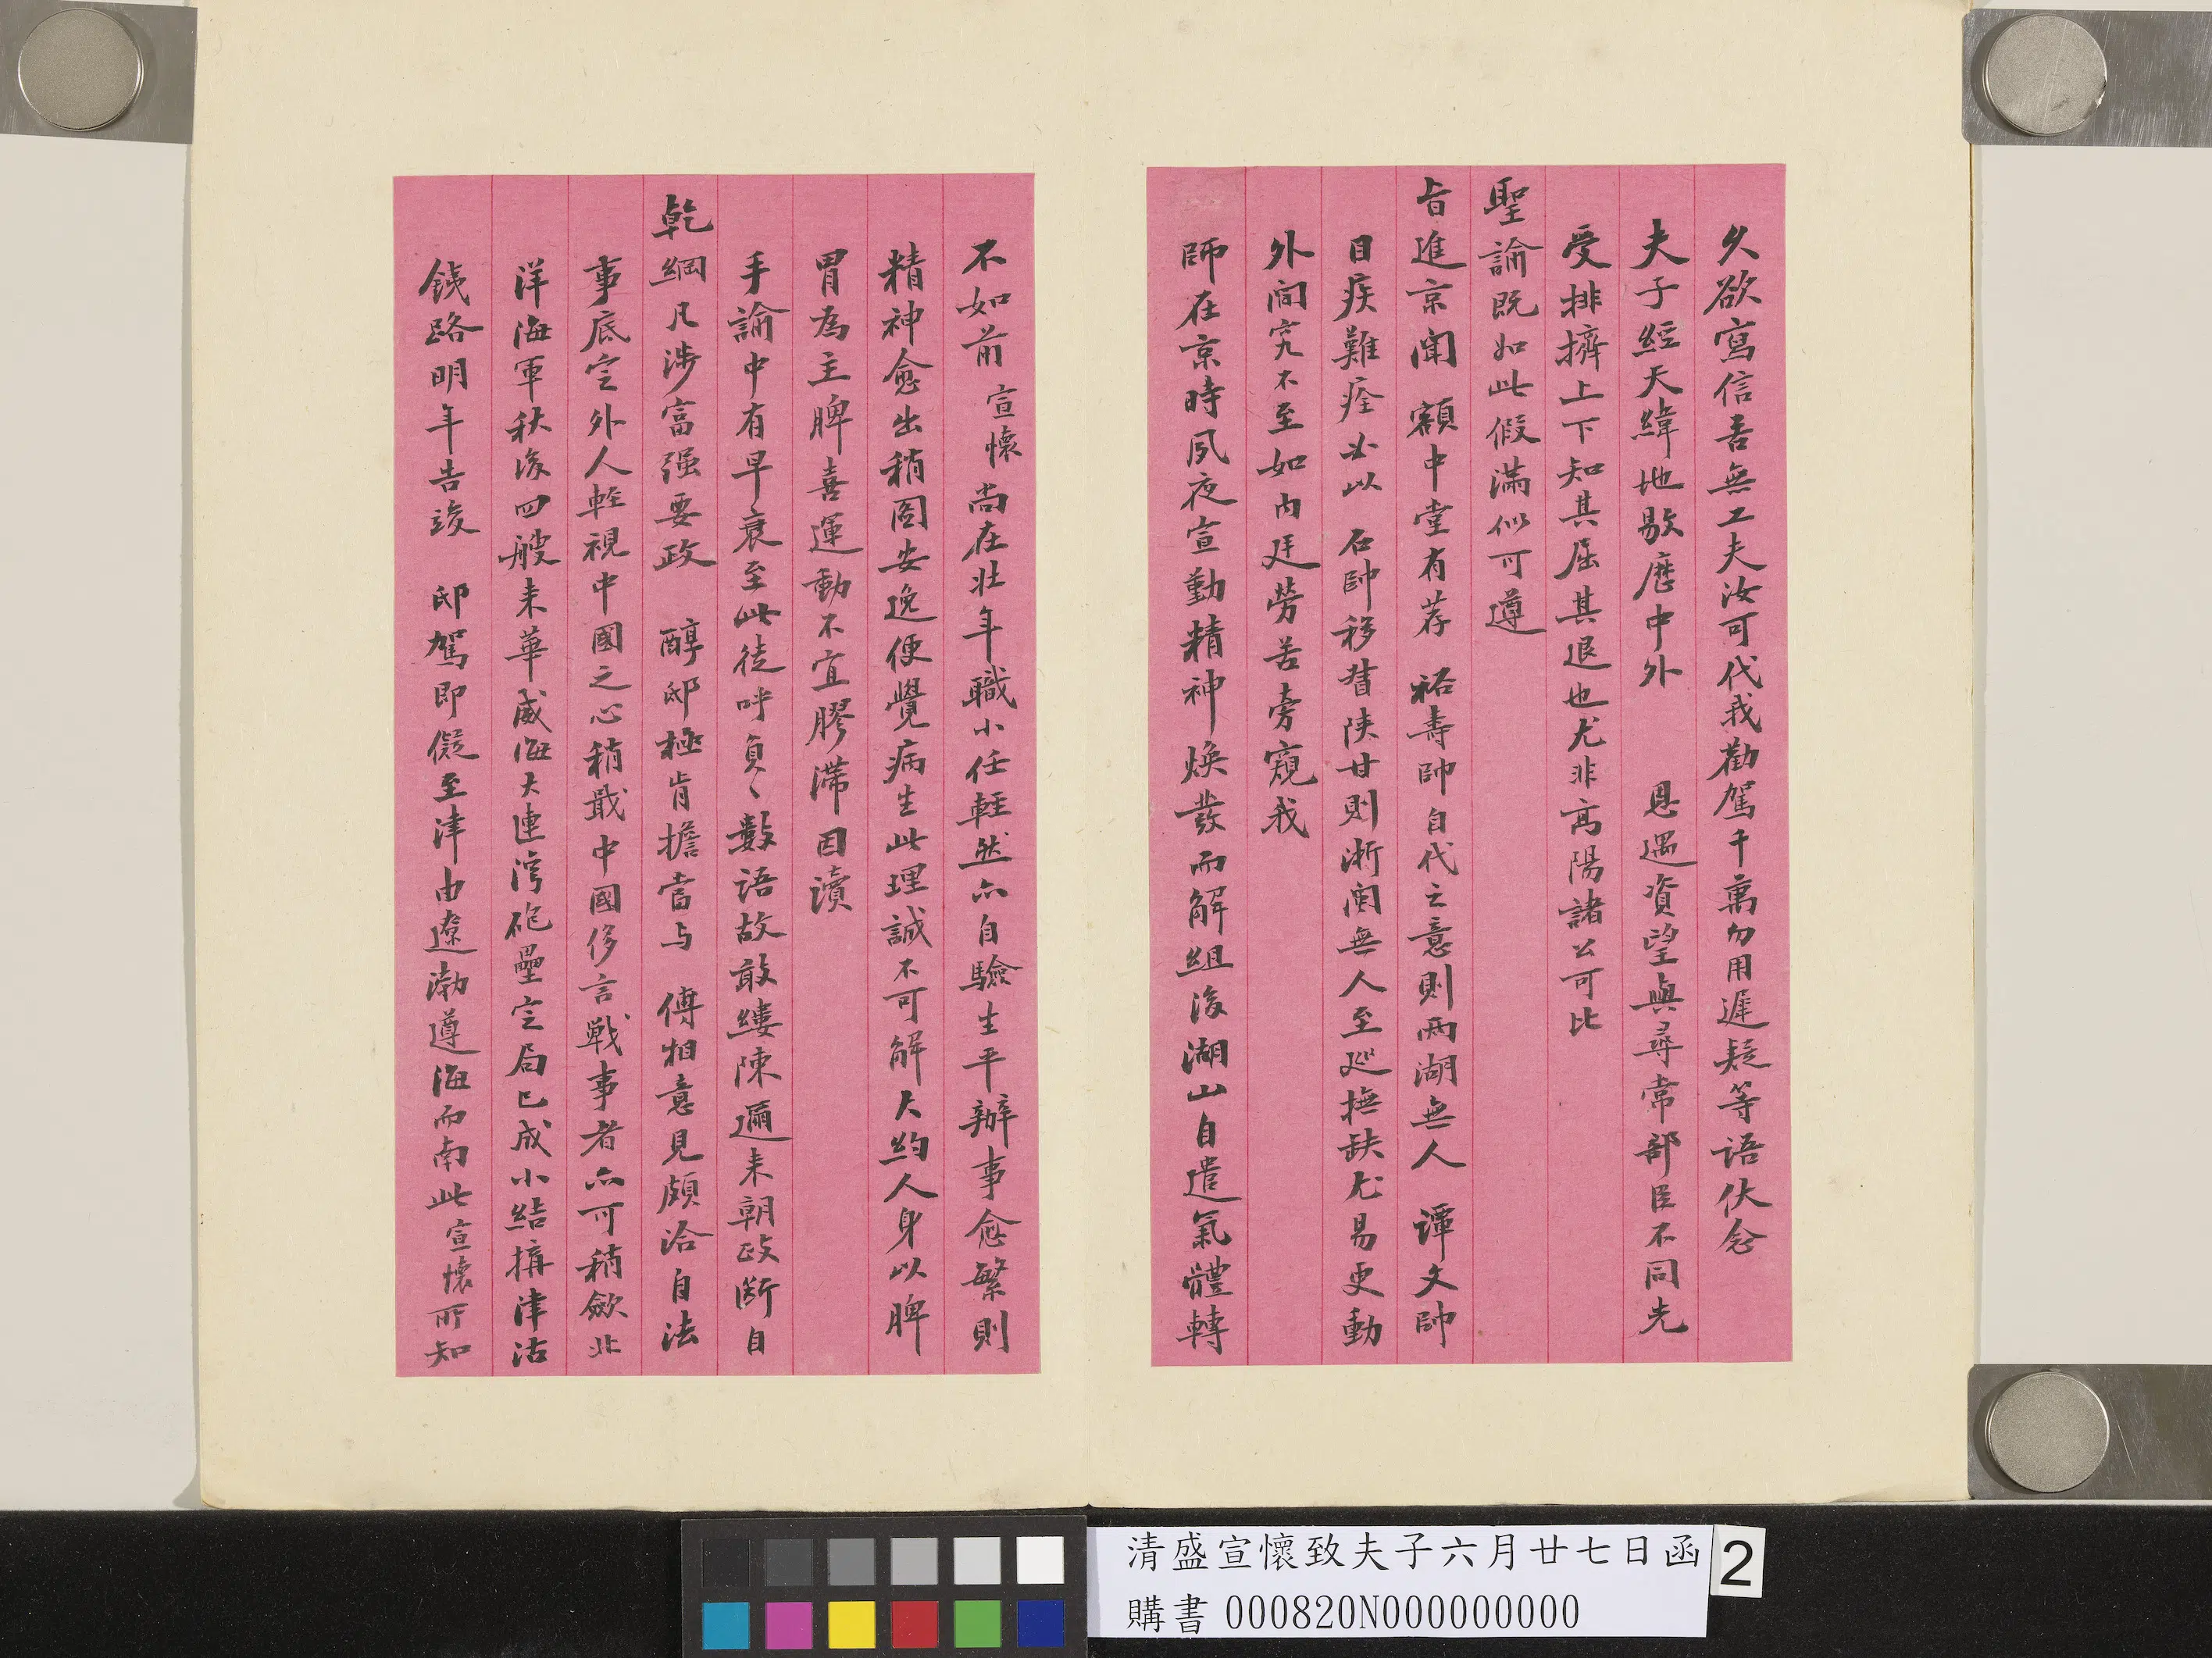 久欲寫信吾無工夫汝可代我勸駕千萬勿用遲疑等語伏念
夫子經天緯地敭歷中外 恩遇資望與尋常部臣不同先
受排擠上下知其屈其退也尤非高陽諸公可比
聖諭既如此假滿似可遵
旨進京聞 額中堂有荐 裕壽帥自代之意則兩湖無人 譚文帥
目疾難痊必以 石帥移督陝甘則浙閩無人至巡撫缺尤易更動
外間究不至如內廷勞苦旁窺我
師在京時夙夜宣勤精神煥發而解組後湖山自遣氣體轉
不如前宣懷尚在壯年職小任輕然亦自驗生平辦事愈繁則
精神愈出稍圖安逸便覺病生此理誠不可解大約人身以脾
胃為主脾喜運動不宜膠滯因讀
手諭中有早衰至此徒呼負〻數語故敢縷陳邇來朝政斷自
乾綱凡涉富强要政 醇邸極肯擔當与 傅相意見頗洽自法
事底定外人輕視中國之心稍戢中國侈言戰事者亦可稍斂北
洋海軍秋後四艘来華威海大連灣砲壘定局已成小結搆津沽
鉄路明年告竣 邸駕即儗至津由遼渤遵海而南此宣懷所知
清盛宣懷致夫子六月廿七日函
購書000820N000000000
2